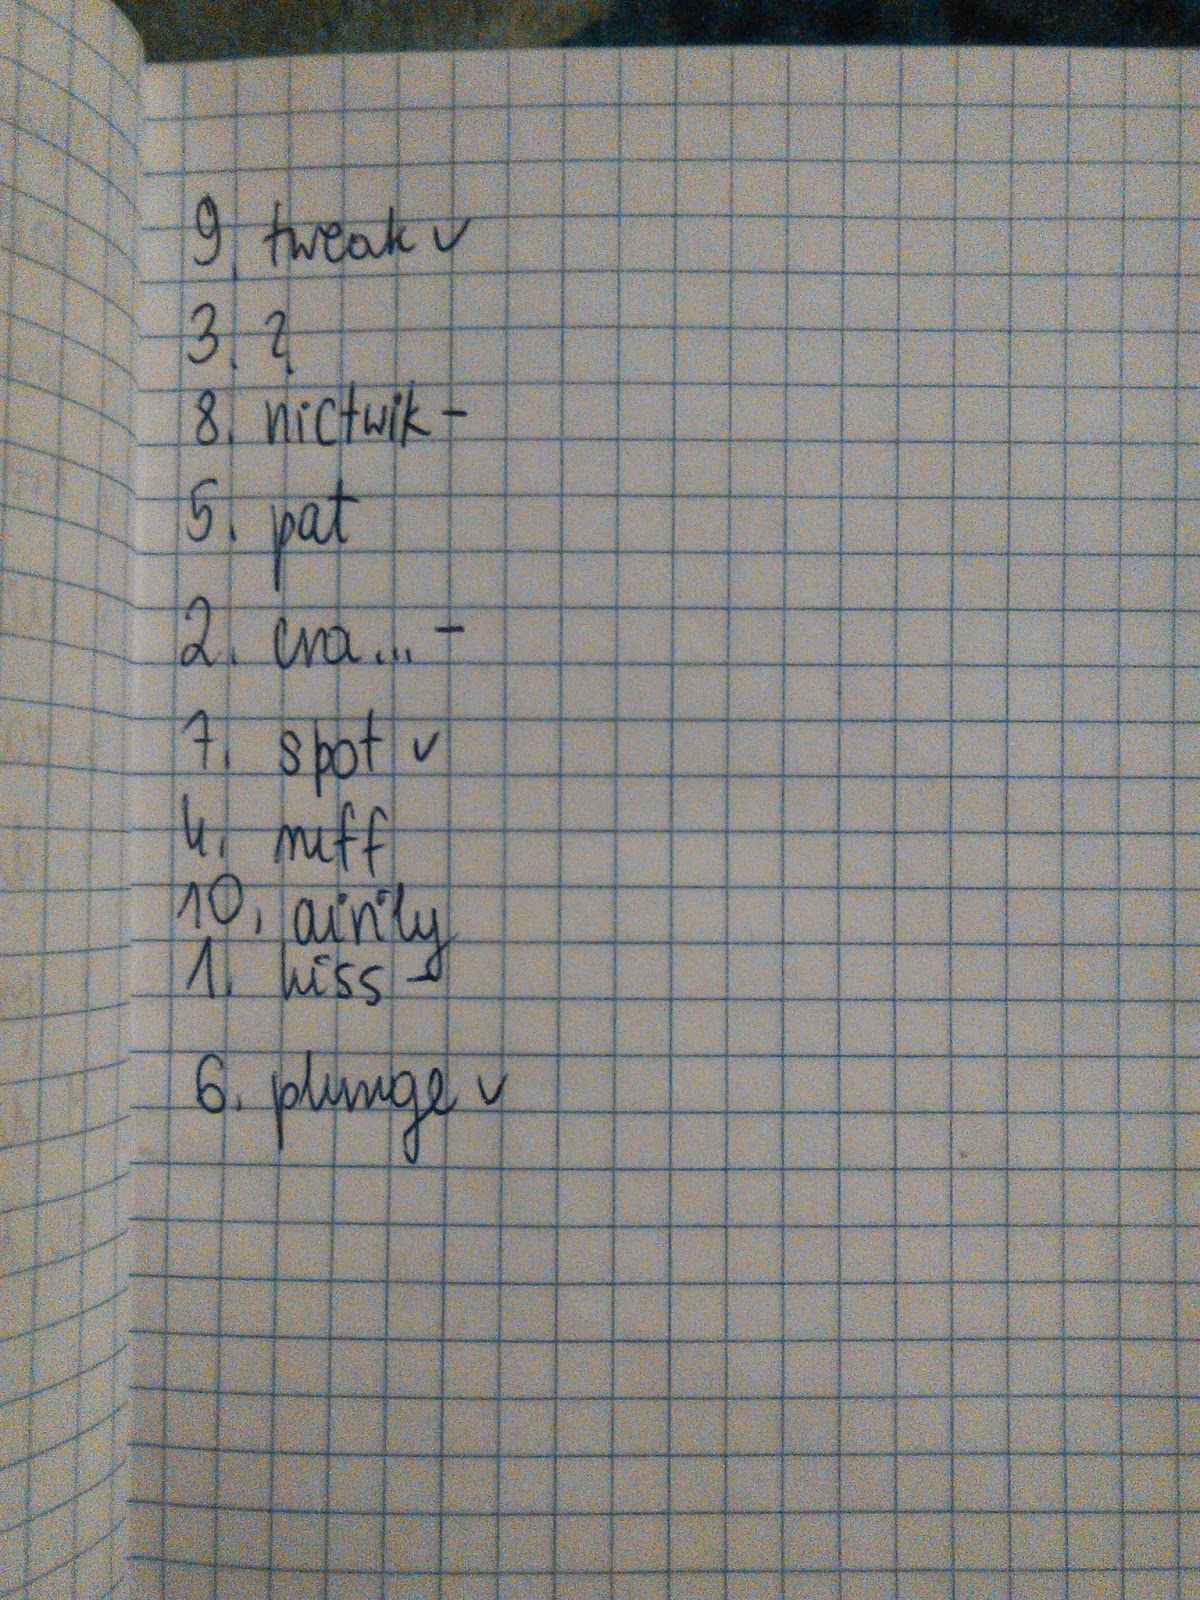 9. tweak ✓
3. ?
8. nictwik -
5. pat
2. cra... -
7. spot ✓
4. ruff
10. airily
1. hiss -
6. plunge ✓